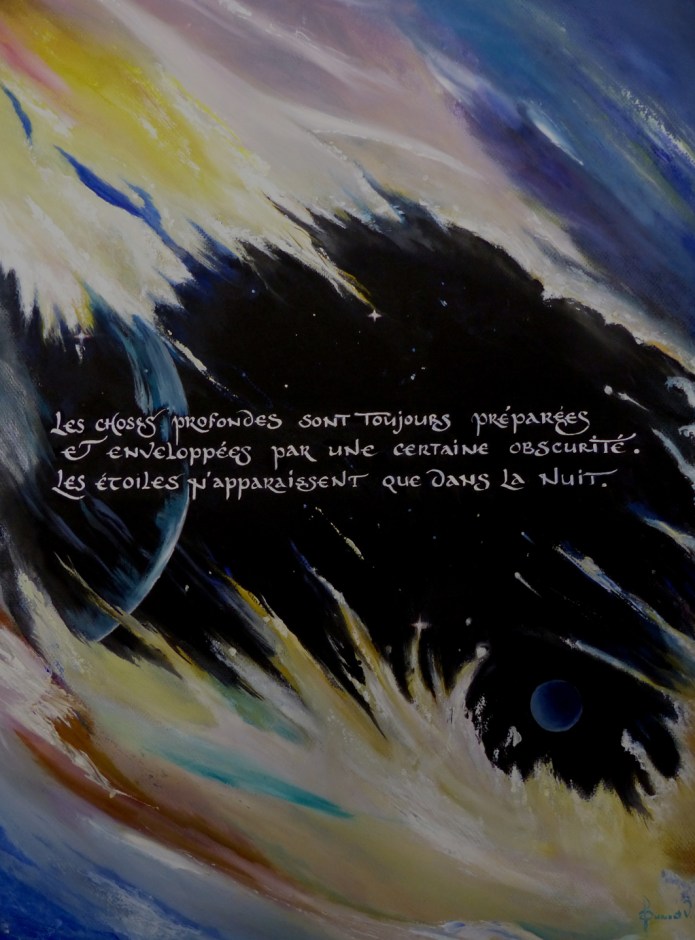 Les choses profondes sont toujours préparées
et enveloppées par une certaine obscurité.
Les étoiles n'apparaissent que dans la nuit.